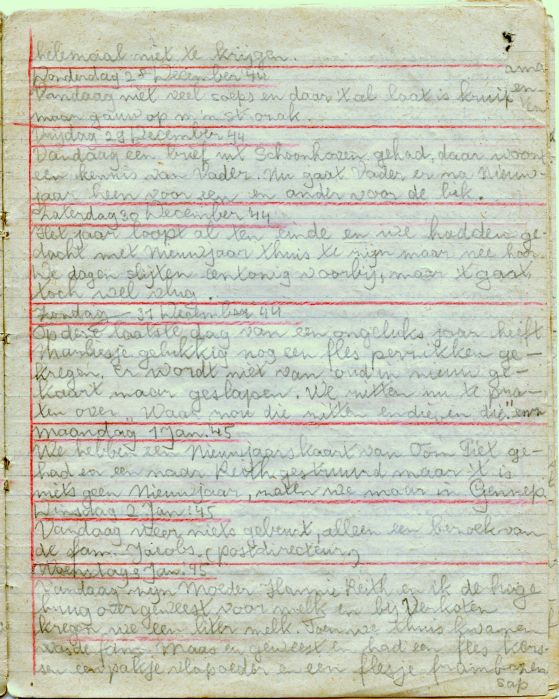 helemaal niet te krijgen.
Donderdag 28 December 44
Vandaag niet veel soeps en daar 't al laat is kruip
maar gauw op m'n
Vrijdag 29 December 44
Vandaag een brief uit Schoonhoven gehad, daar woont
een kennis van Vader. Nu gaat Vader er na Nieuw-
jaar heen voor een en ander voor de bik.
Zaterdag 30 December 44
Het jaar loopt al ten einde en we hadden ge-
dacht met Nieuwjaar thuis te zijn maar nee hoor.
De dagen slijten eentonig voorbij, maar 't gaat
toch wel vlug.
Zondag 31 December 44
Op deze laatste dag van een ongeluks jaar heeft
gelukkig nog een fles ge-
kregen. Er wordt niet van oud in nieuw ge-
kaart maar geslapen. We zitten nu te pra-
ten over "Waar zou die zitten en die, en die" enz
Maandag 1 Jan. '45
We hebben een Nieuwjaarskaart van Oom Piet ge-
had en een naar gestuurd maar 't is
niets geen Nieuwjaar, zaten we maar in Gennep.
Dinsdag 2 Jan. '45
Vandaag weer niets gebeurt, alleen een bezoek van
de fam. Jacobs. (postdirecteur)
Woensdag 3 Jan. '45
Vandaag zijn Moeder Hannie en ik de hoge
brug over geweest voor melk en bij
kregen we een liter melk. Toen we thuis kwamen
was de fam. Maas er geweest en had een fles kers-
sen een pakje vlapoeder en een flesje frambozen
sap